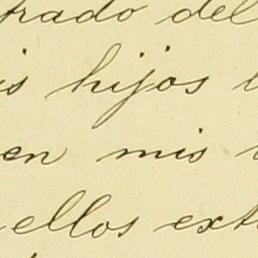 trado del
is hijos
en mis
ellos ext